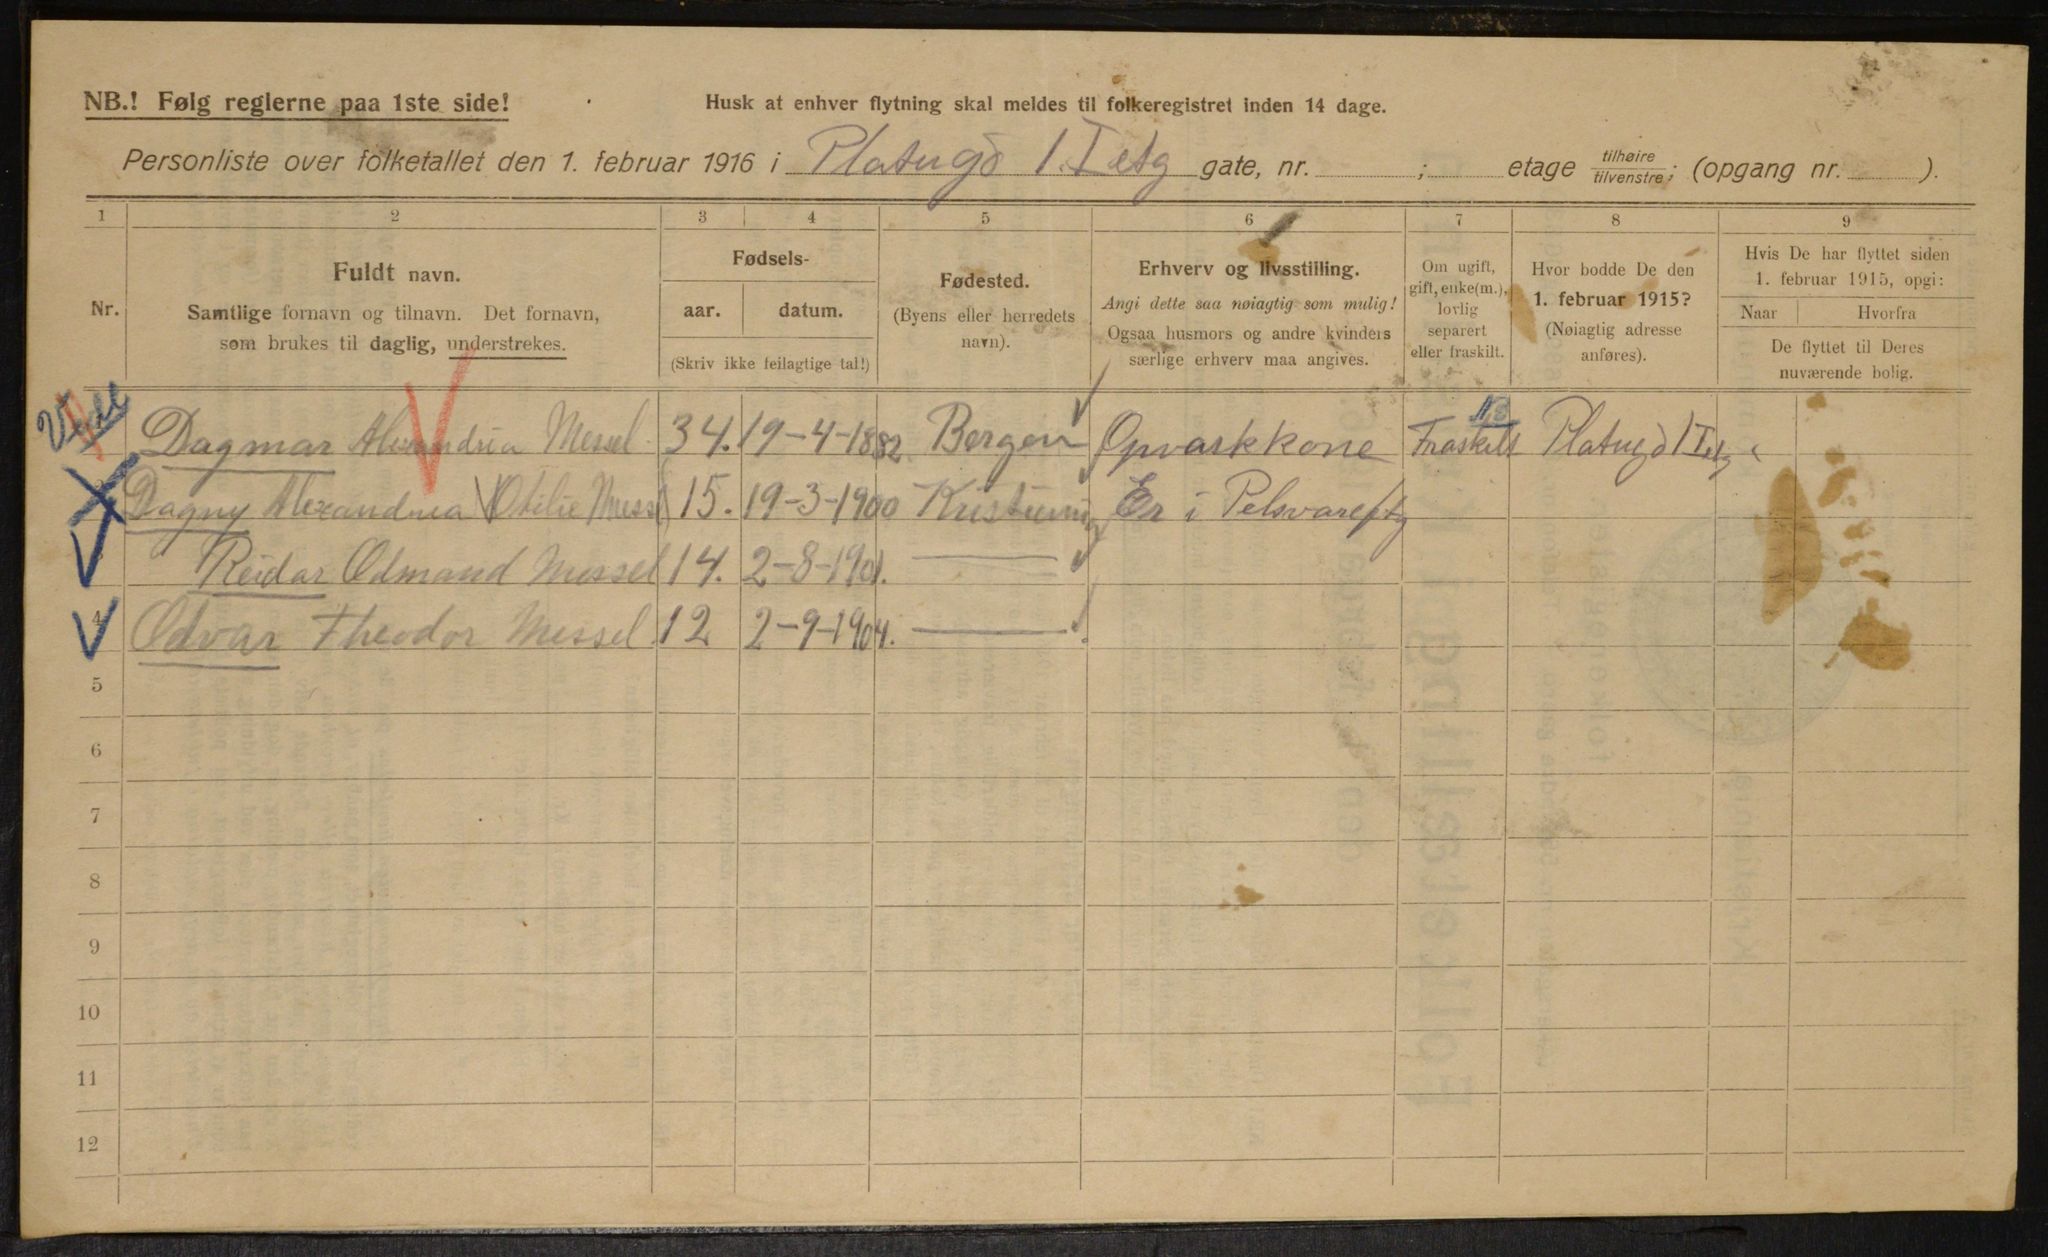 NB.! Følg reglerne paa 1ste side!
Husk at enhver flytning skal meldes til folkeregistret inden 14 dage.
Personliste over folketallet den 1. februar 1916 i Platougd 1 I etg gate, nr. ; etage tilhøire tilvenstre; (opgang nr. ).
1 2 3 4 5 6 7 8 9
Nr.
Fuldt navn.
Samtlige fornavn og tilnavn. Det fornavn,
som brukes til daglig, understrekes.
Fødsels-
aar. datum.
(Skriv ikke feilagtige tal!)
Fødested.
(Byens eller herredets
navn).
Erhverv og livsstilling.
Angi dette saa nøiagtig som mulig!
Ogsaa husmors og andre kvinders
særlige erhverv maa angives.
Om ugift,
gift, enke(m.),
lovlig
separert
eller fraskilt.
Hvor bodde De den
1. februar 1915?
(Nøiagtig adresse
anføres).
Hvis De har flyttet siden
1. februar 1915, opgi:
Naar Hvorfra
De flyttet til Deres
nuværende bolig.
Dagmar Alexandria Messel 34. 19-4-1882 Bergen Opvaskkone Fraskilt Platugd 1 I etg
Dagny Alexandria Otilie Messel 15. 19-3-1900 Kristiania Er i Pelsvareftg
Reidar Odmand Messel 14. 2-8-1901.
4 Odvar Theodor Messel 12 2-9-1904.
5
6
7
8
9
10
11
12